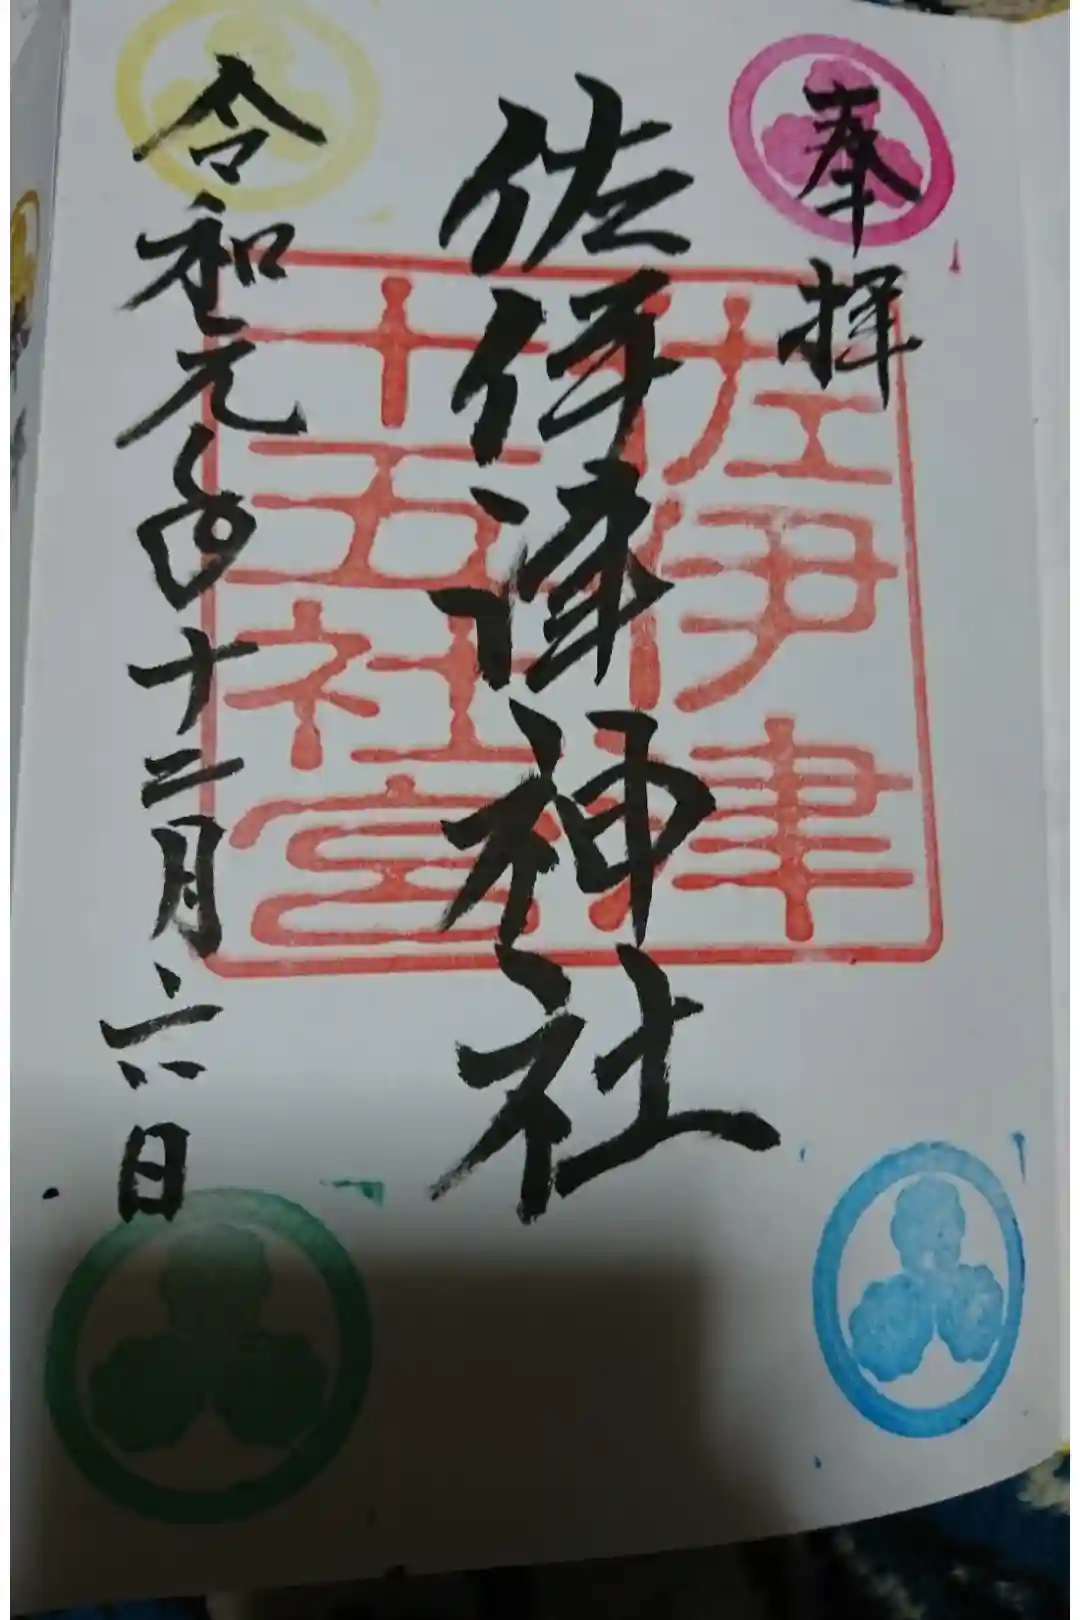 奉拝
佐伊津神社
佐伊津
十五社宮
令和元年十二月六日